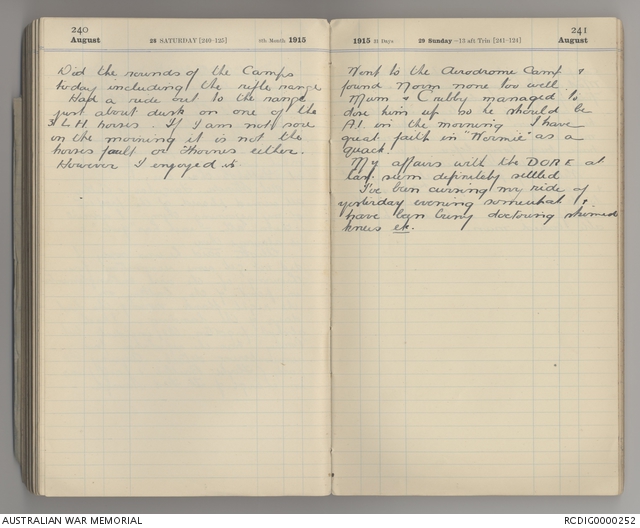 240
August
28 SATURDAY [240-125]
8th Month 1915
Did the rounds of the Camps
today including the rifle range
Had a ride out to the range
just about dusk on one of the
I L H horses. If I am not sore
in the morning it is not the
horses fault or Thornes either.
However I enjoyed it.
1915 31 Days
29 Sunday—13 aft Trin [241-124]
241
August
Went to the Aerodrome Camp &
found Norm none too well.
Mum & Crabby managed to
dose him up so he should be
A.I. in the morning I have
great faith in "Wormie" as a
quack.
My affairs with the DORE at
seem definitely settled
I've been cursing my ride of
yesterday evening somewhat &
have been busy doctoring skinned
knees etc.
AUSTRALIAN WAR MEMORIAL
RCDIG0000252